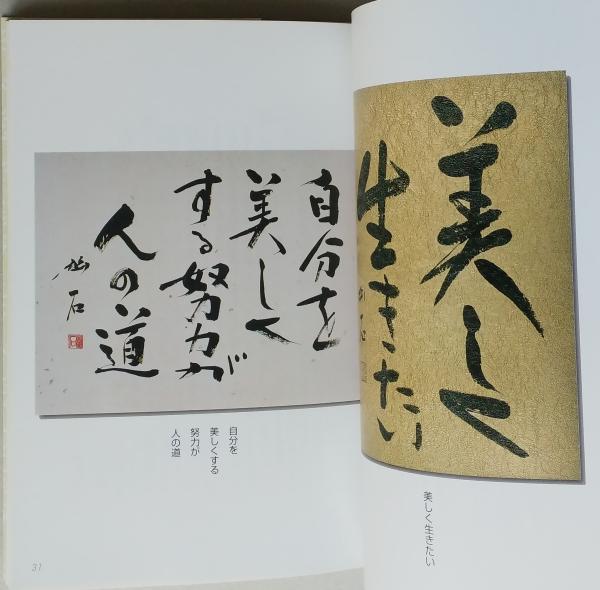 美しく
生きたい
美しく生きたい
自分を
美しく
する努力が
人の道
自分を
美しくする
努力が
人の道
31